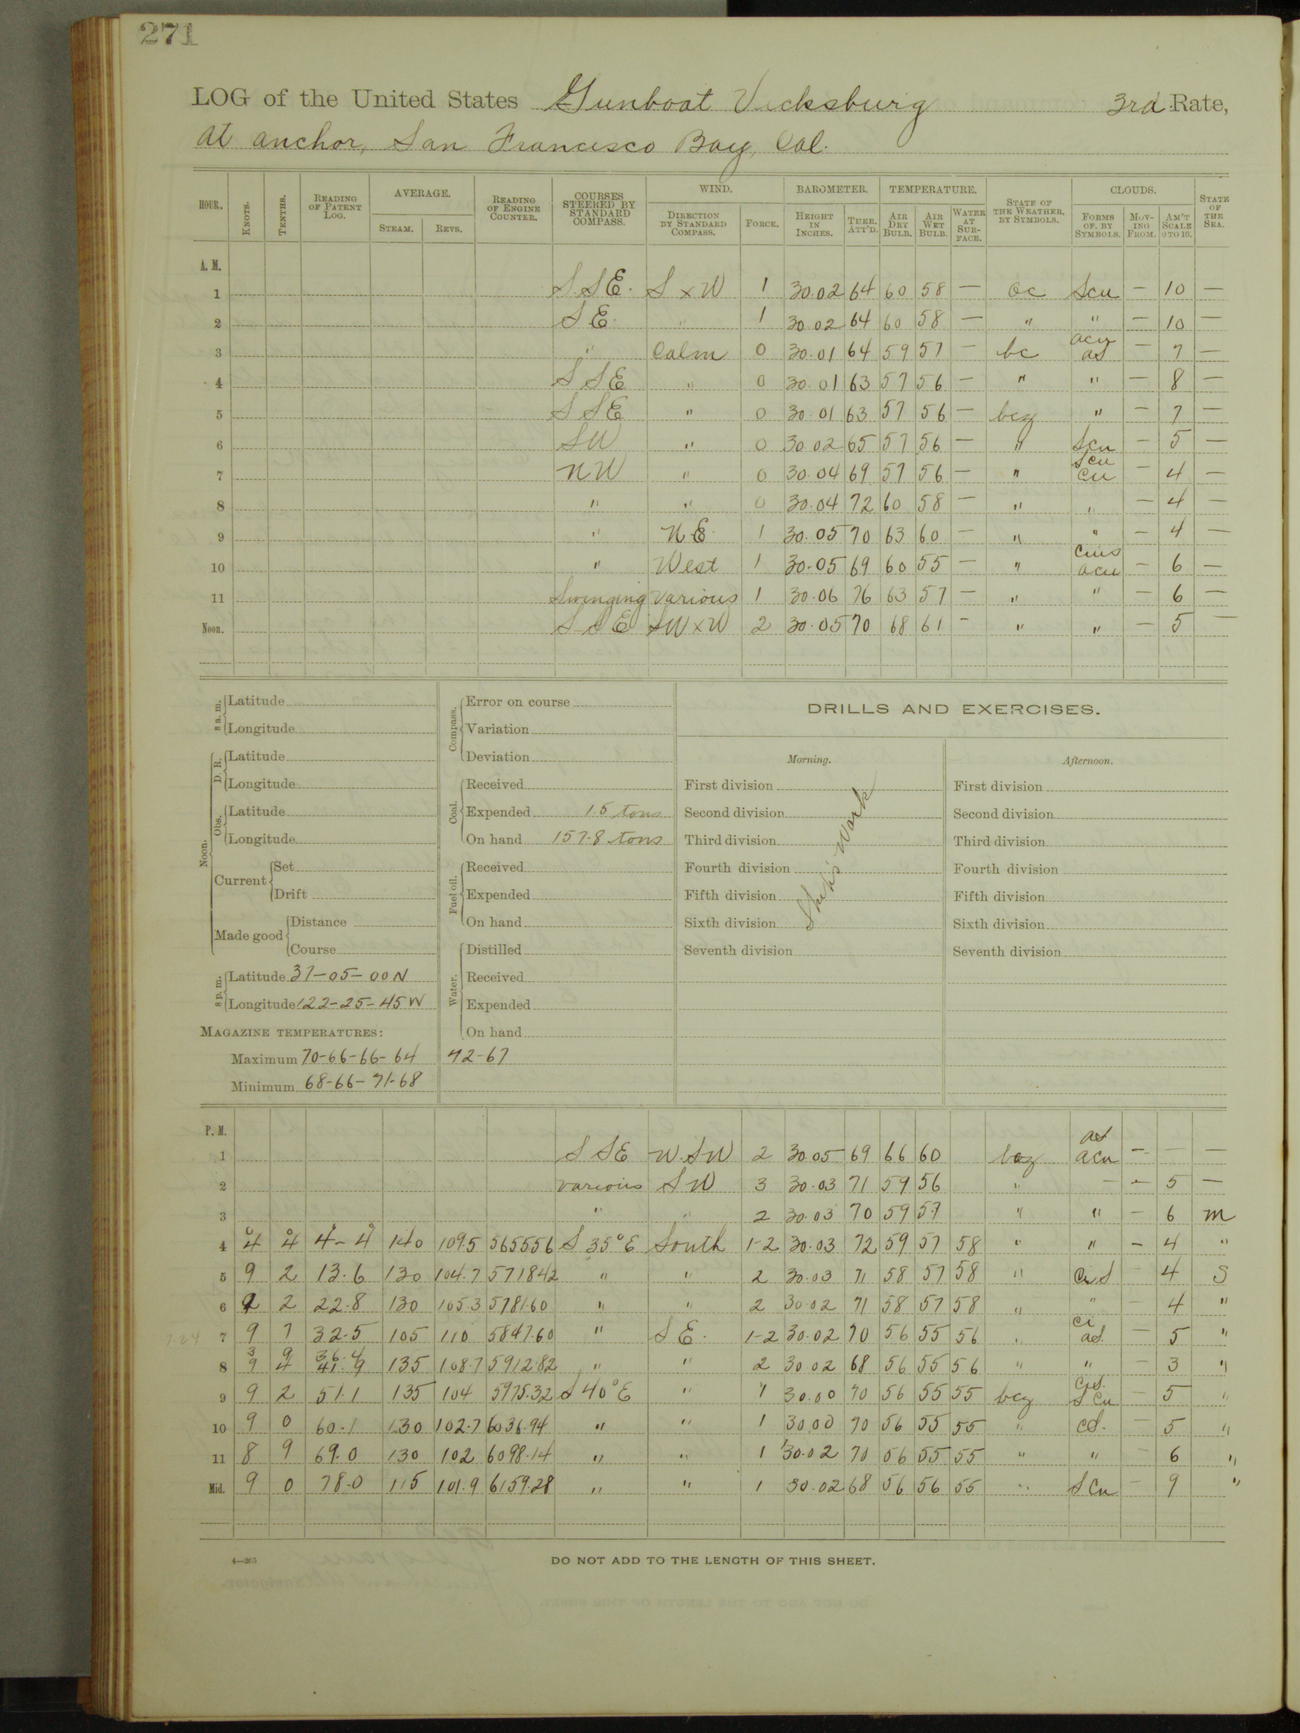 271
LOG of the United States Gunboat Vicksburg 3rd Rate,
At anchor, San Francisco Bay, Cal.
HOUR. KNOTS. TENTHS. READING OF PATENT LOG. AVERAGE. STEAM. REVS. READING OF ENGINE COUNTER. COURSES STEERED BY STANDARD COMPASS. WIND. DIRECTION BY STANDARD COMPASS. FORCE. BAROMETER. HEIGHT IN INCHES. THER. ATT'D. TEMPERATURE. AIR DRY BULB. AIR WET BULB. WATER AT SURFACE. STATE OF THE WEATHER, BY SYMBOLS. CLOUDS. FORMS OF, BY SYMBOLS. MOVING FROM. AM'T SCALE 0 TO 10. STATE OF THE SEA.
A. M.
1 SSE. S x W 1 30.02 64 60 58 — oc Scu — 10 —
2 SE. " 1 30.02 64 60 58 — " " — 10 —
3 " Calm 0 30.01 64 59 57 — bc acu as — 7 —
4 SSE " 0 30.01 63 57 56 — " " — 8 —
5 SSE " 0 30.01 63 57 56 — bcz " — 7 —
6 SW " 0 30.02 65 57 56 — " Scu — 5 —
7 NW " 0 30.04 69 57 56 — " Scu cu — 4 —
8 " " 0 30.04 72 60 58 — " " — 4 —
9 " NE. 1 30.05 70 63 60 — " " — 4 —
10 " West 1 30.05 69 60 55 — " acu — 6 —
11 Swinging Various 1 30.06 76 63 57 — " " — 6 —
Noon. SSE SW x W 2 30.05 70 68 61 - " " — 5 —
8 a. m. Latitude
Longitude
Noon. D. R. Latitude
Longitude
Obs. Latitude
Longitude
Current Set
Drift
Made good Distance
Course
8 p. m. Latitude 37-05-00N
Longitude 122-25-45W
MAGAZINE TEMPERATURES:
Maximum 70-66-66-64 72-67
Minimum 68-66-71-68
Compass. Error on course
Variation
Deviation
Coal. Received
Expended 1.5 tons
On hand 157.8 tons
Fuel oil. Received
Expended
On hand
Water. Distilled
Received
Expended
On hand
DRILLS AND EXERCISES.
Morning. Afternoon.
First division First division
Second division Second division
Third division Third division
Fourth division Fourth division
Fifth division Fifth division
Sixth division Sixth division
Seventh division Seventh division
Ship's Work
P. M.
1 SSE WSW 2 30.05 69 66 60 bcz as acu — — —
2 Various SW 3 30.03 71 59 56 " — - 5 —
3 " " 2 30.03 70 59 57 " " — 6 m
4 4 4 4-4 140 109.5 565556 S 35° E South 1-2 30.03 72 59 57 58 " " — 4 "
5 9 2 13.6 130 104.7 571842 " " 2 30.03 71 58 57 58 " CiS — 4 S
6 9 2 22.8 130 105.3 578160 " " 2 30.02 71 58 57 58 " " — 4 "
7 9 7 32.5 105 110 584760 " SE. 1-2 30.02 70 56 55 56 " ci as. — 5 "
3 9 36.4
8 9 4 41.9 135 108.7 591282 " " 2 30.02 68 56 55 56 " " — 3 "
9 9 2 51.1 135 104 597532 S 40° E " 1 30.00 70 56 55 55 bcz CiS. S Cu — 5 "
10 9 0 60.1 130 102.7 603694 " " 1 30.00 70 56 55 55 " CS. — 5 "
11 8 9 69.0 130 102 6098.14 " " 1 30.02 70 56 55 55 " " — 6 "
Mid. 9 0 78.0 115 101.9 6159.28 " " 1 30.02 68 56 56 55 " S Cu — 9 "
4—265
DO NOT ADD TO THE LENGTH OF THIS SHEET.